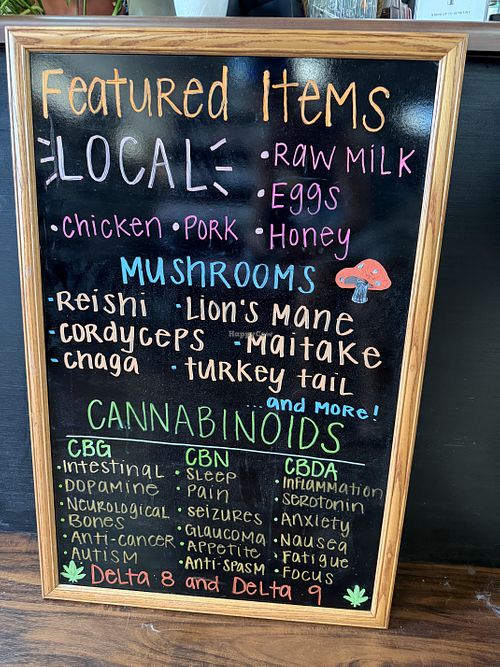 Featured Items
LOCAL
• Raw Milk
• Eggs
• Chicken • Pork • Honey
Mushrooms
• Reishi • Lion's Mane
• Cordyceps • Maitake
• Chaga • Turkey Tail
...and more!
CANNABINOIDS
CBG
• Intestinal
• Dopamine
• Neurological
• Bones
• Anti-cancer
• Autism
CBN
• Sleep
• Pain
• Seizures
• Glaucoma
• Appetite
• Anti-spasm
CBDA
• Inflammation
• Serotonin
• Anxiety
• Nausea
• Fatigue
• Focus
Delta 8 and Delta 9
HappyCow